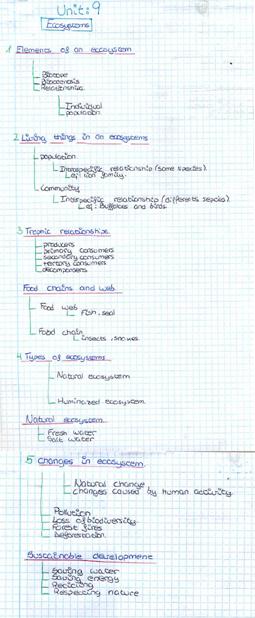 Unit: 9
Ecosystems
1 Elements of an ecosystem
Biotope
Biocenosis
Relationship
Individual
population
2 Living things in an ecosystems
population
Intraspecific relationship (same species)
ej: lion family.
Community
Interspecific relationship (differents specie)
ej: Buffaloes and birds.
3 Trophic relationships.
producers
primary consumers
secondary consumers
tertiary consumers
decomposers
Food chains and web
Food web
Fish, seal
Food chain
insects, snakes.
4 Types of ecosystems
Natural ecosystem
Humanized ecosystem
Natural ecosystem
Fresh water
Salt water
5 Changes in ecosystem
Natural change
changes caused by human activity.
Pollution
Loss of biodiversity
Forest fires
Deforestation
Sustainable development
Saving water
Saving energy
Recicling
Respecting nature